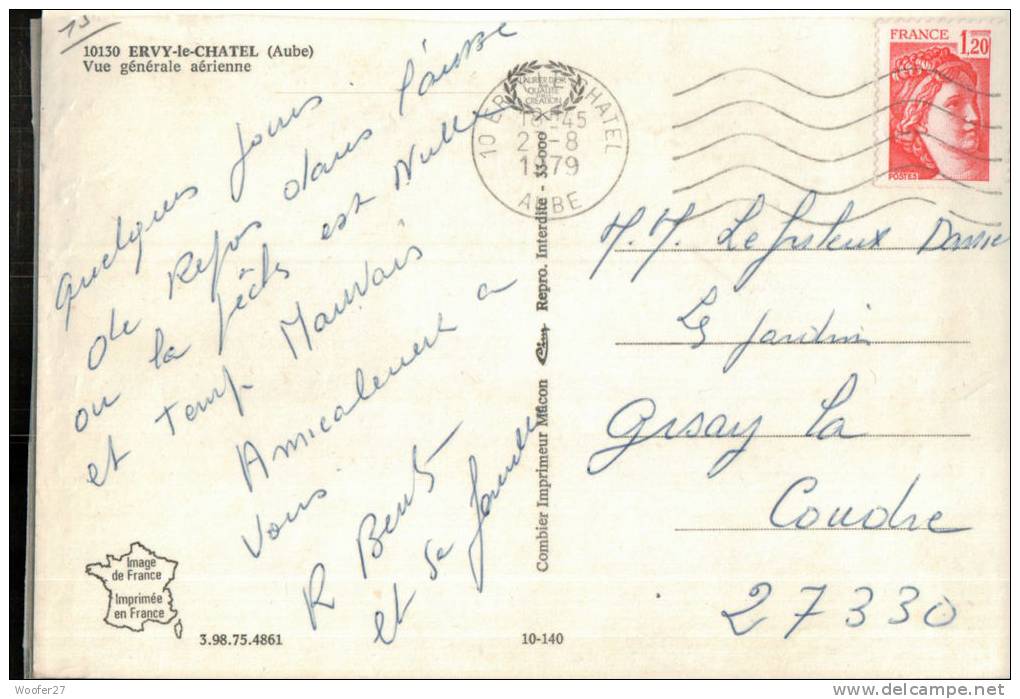 19
10130 ERVY-le-CHATEL (Aube)
Vue générale aérienne
Quelques jours
de Repos dans l'ausse
ou la pêche est Nulle
et temp Mauvais
Amicalement a
vous
R Bent
et sa famille
Image
de France
Imprimée
en France
3.98.75.4861
10-140
Combier Imprimeur Mâcon
Repro. Interdite - 33-000
LAURIER D'OR
QUALITÉ
CRÉATION
10 ERVY CHATEL
18-45
2 -8
1979
AUBE
FRANCE 1,20
POSTES
M. M. Le
Le jardin
Gisay la
Coudre
27330
Woofer27
http://www.delcampe.net